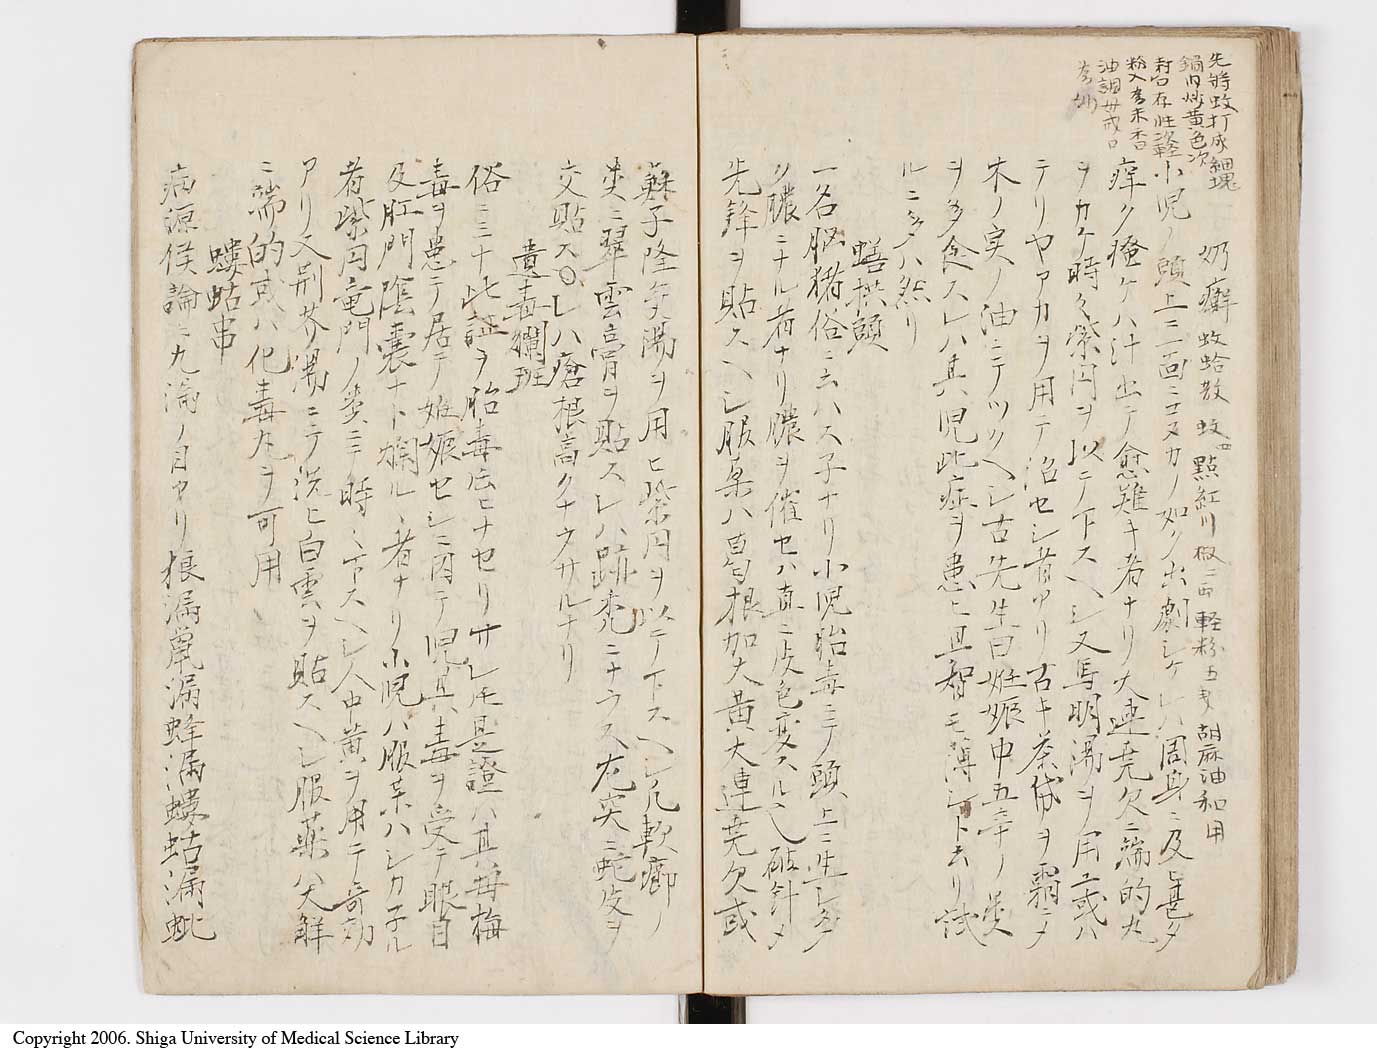 先將蚊打成細塊
鍋内炒黄色次
封口存性次軽
粉入為末香
油調母戒口
為
奶癬 蚊蛤散 蚊四 點紅川椒二両 軽粉五匁 胡麻油和用
小児ノ頭上三面ニコヌカノ如ク出劇シケレハ周身ニ及ヒ甚タ
痒ク瘙ケハ汁出テ愈難キ者ナリ大連壳欠ニ端的丸
ヲカケ時々紫円ヲ以ニテ下スヘシ又馬明湯ヲ用ユ或ハ
テリヤアカヲ用テ治セシ者アリ古キ茶袋ヲ霜ニメ
木ノ実ノ油ニテツクヘシ古先生曰妊娠中五辛ノ类
ヲ多食スレハ其児此症ヲ患ヒ且智モ薄シト云リ試
ルニ多ハ然リ
蟮拱頭
一名脳猪俗ニ云ハス子ナリ小児胎毒ニテ頭上ニ生シ多
ク膿ニナル者ナリ膿ヲ催セハ直ニ皮色変スルヘ破針メ
先鋒ヲ貼スヘシ服薬ハ葛根加大黄大連壳欠或
蘇子降気湯ヲ用ヒ紫円ヲ以テ下スヘシ凡軟癤ノ
类ニ翠雲膏ヲ貼スレハ跡禿ニナラス尤突ニ蛇皮ヲ
交貼ス〇レハ瘡根高クナラサルナリ
遺毒爛班
俗ニ三十此証ヲ胎毒広ヒナセリサレ𪜈是證ハ其母梅
毒ヲ患テ居テ妊娠セシニ因テ児其毒ヲ受テ眼目
及肛門陰嚢ナト爛ル者ナリ小児ハ服薬ハシカ子ル
者紫円竜門ノ类ニテ時々下スヘシ人中黄ヲ用テ奇効
アリ又荊芥湯ニテ洗ヒ白雲ヲ貼スヘシ服薬ハ大解
ニ端的或ハ化毒丸ヲ可用
螻蛄串
病源候論ニ九漏ノ目アリ狼漏鼠漏蜂漏螻蛄漏蚍